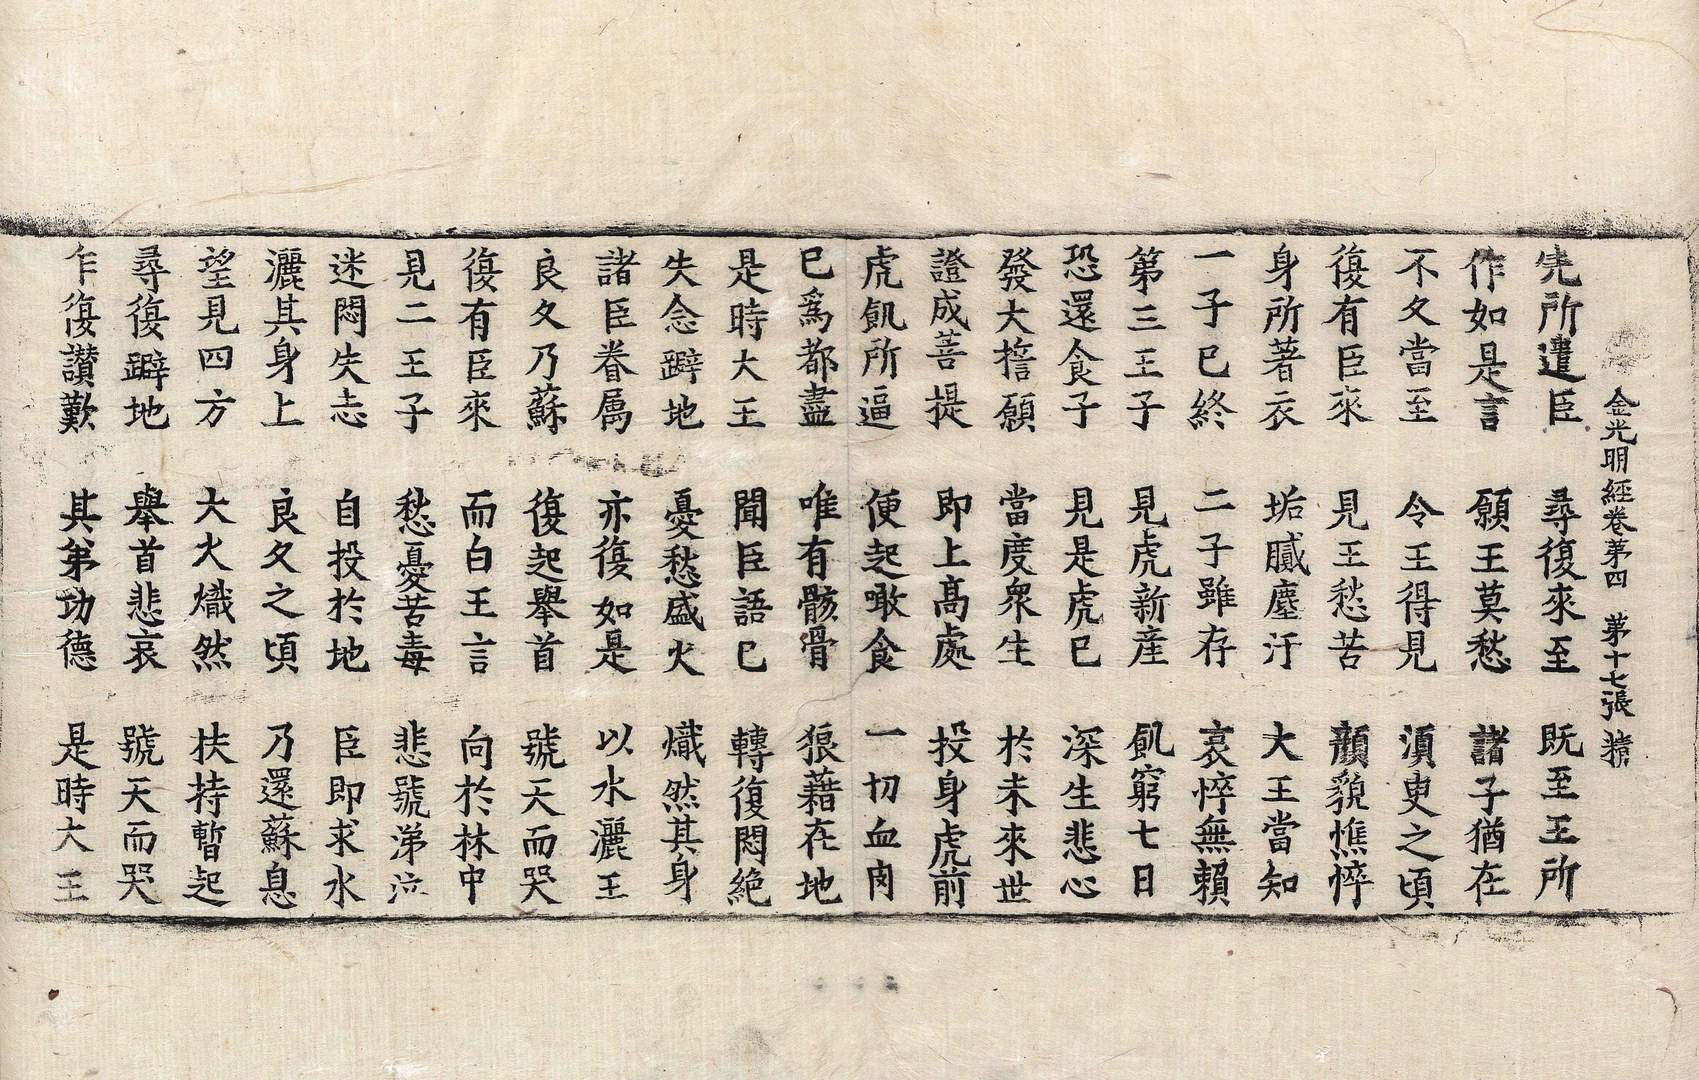 金光明經卷第四　第十七張　積
先所遣臣　尋復來至　既至王所
作如是言　願王莫愁　諸子猶在
不久當至　令王得見　湏臾之頃
復有臣來　見王愁苦　顔貌憔悴
身所著衣　垢膩塵汙　大王當知
一子已終　二子雖存　哀悴無賴
第三王子　見虎新産　飢窮七日
恐還食子　見是虎已　深生悲心
發大誓願　當度衆生　於未來世
證成菩提　即上高處　投身虎前
虎飢所逼　便起噉食　一切血肉
已爲都盡　唯有骸骨　狼藉在地
是時大王　聞臣語已　轉復悶絶
失念躃地　憂愁盛火　熾然其身
諸臣眷属　亦復如是　以水灑王
良久乃蘇　復起舉首　號天而哭
復有臣來　而白王言　向於林中
見二王子　愁憂苦毒　悲號涕泣
迷悶失志　自投於地　臣即求水
灑其身上　良久之頃　乃還蘇息
望見四方　大火熾然　扶持暫起
尋復躃地　舉首悲哀　號天而哭
乍復讃歎　其弟功德　是時大王